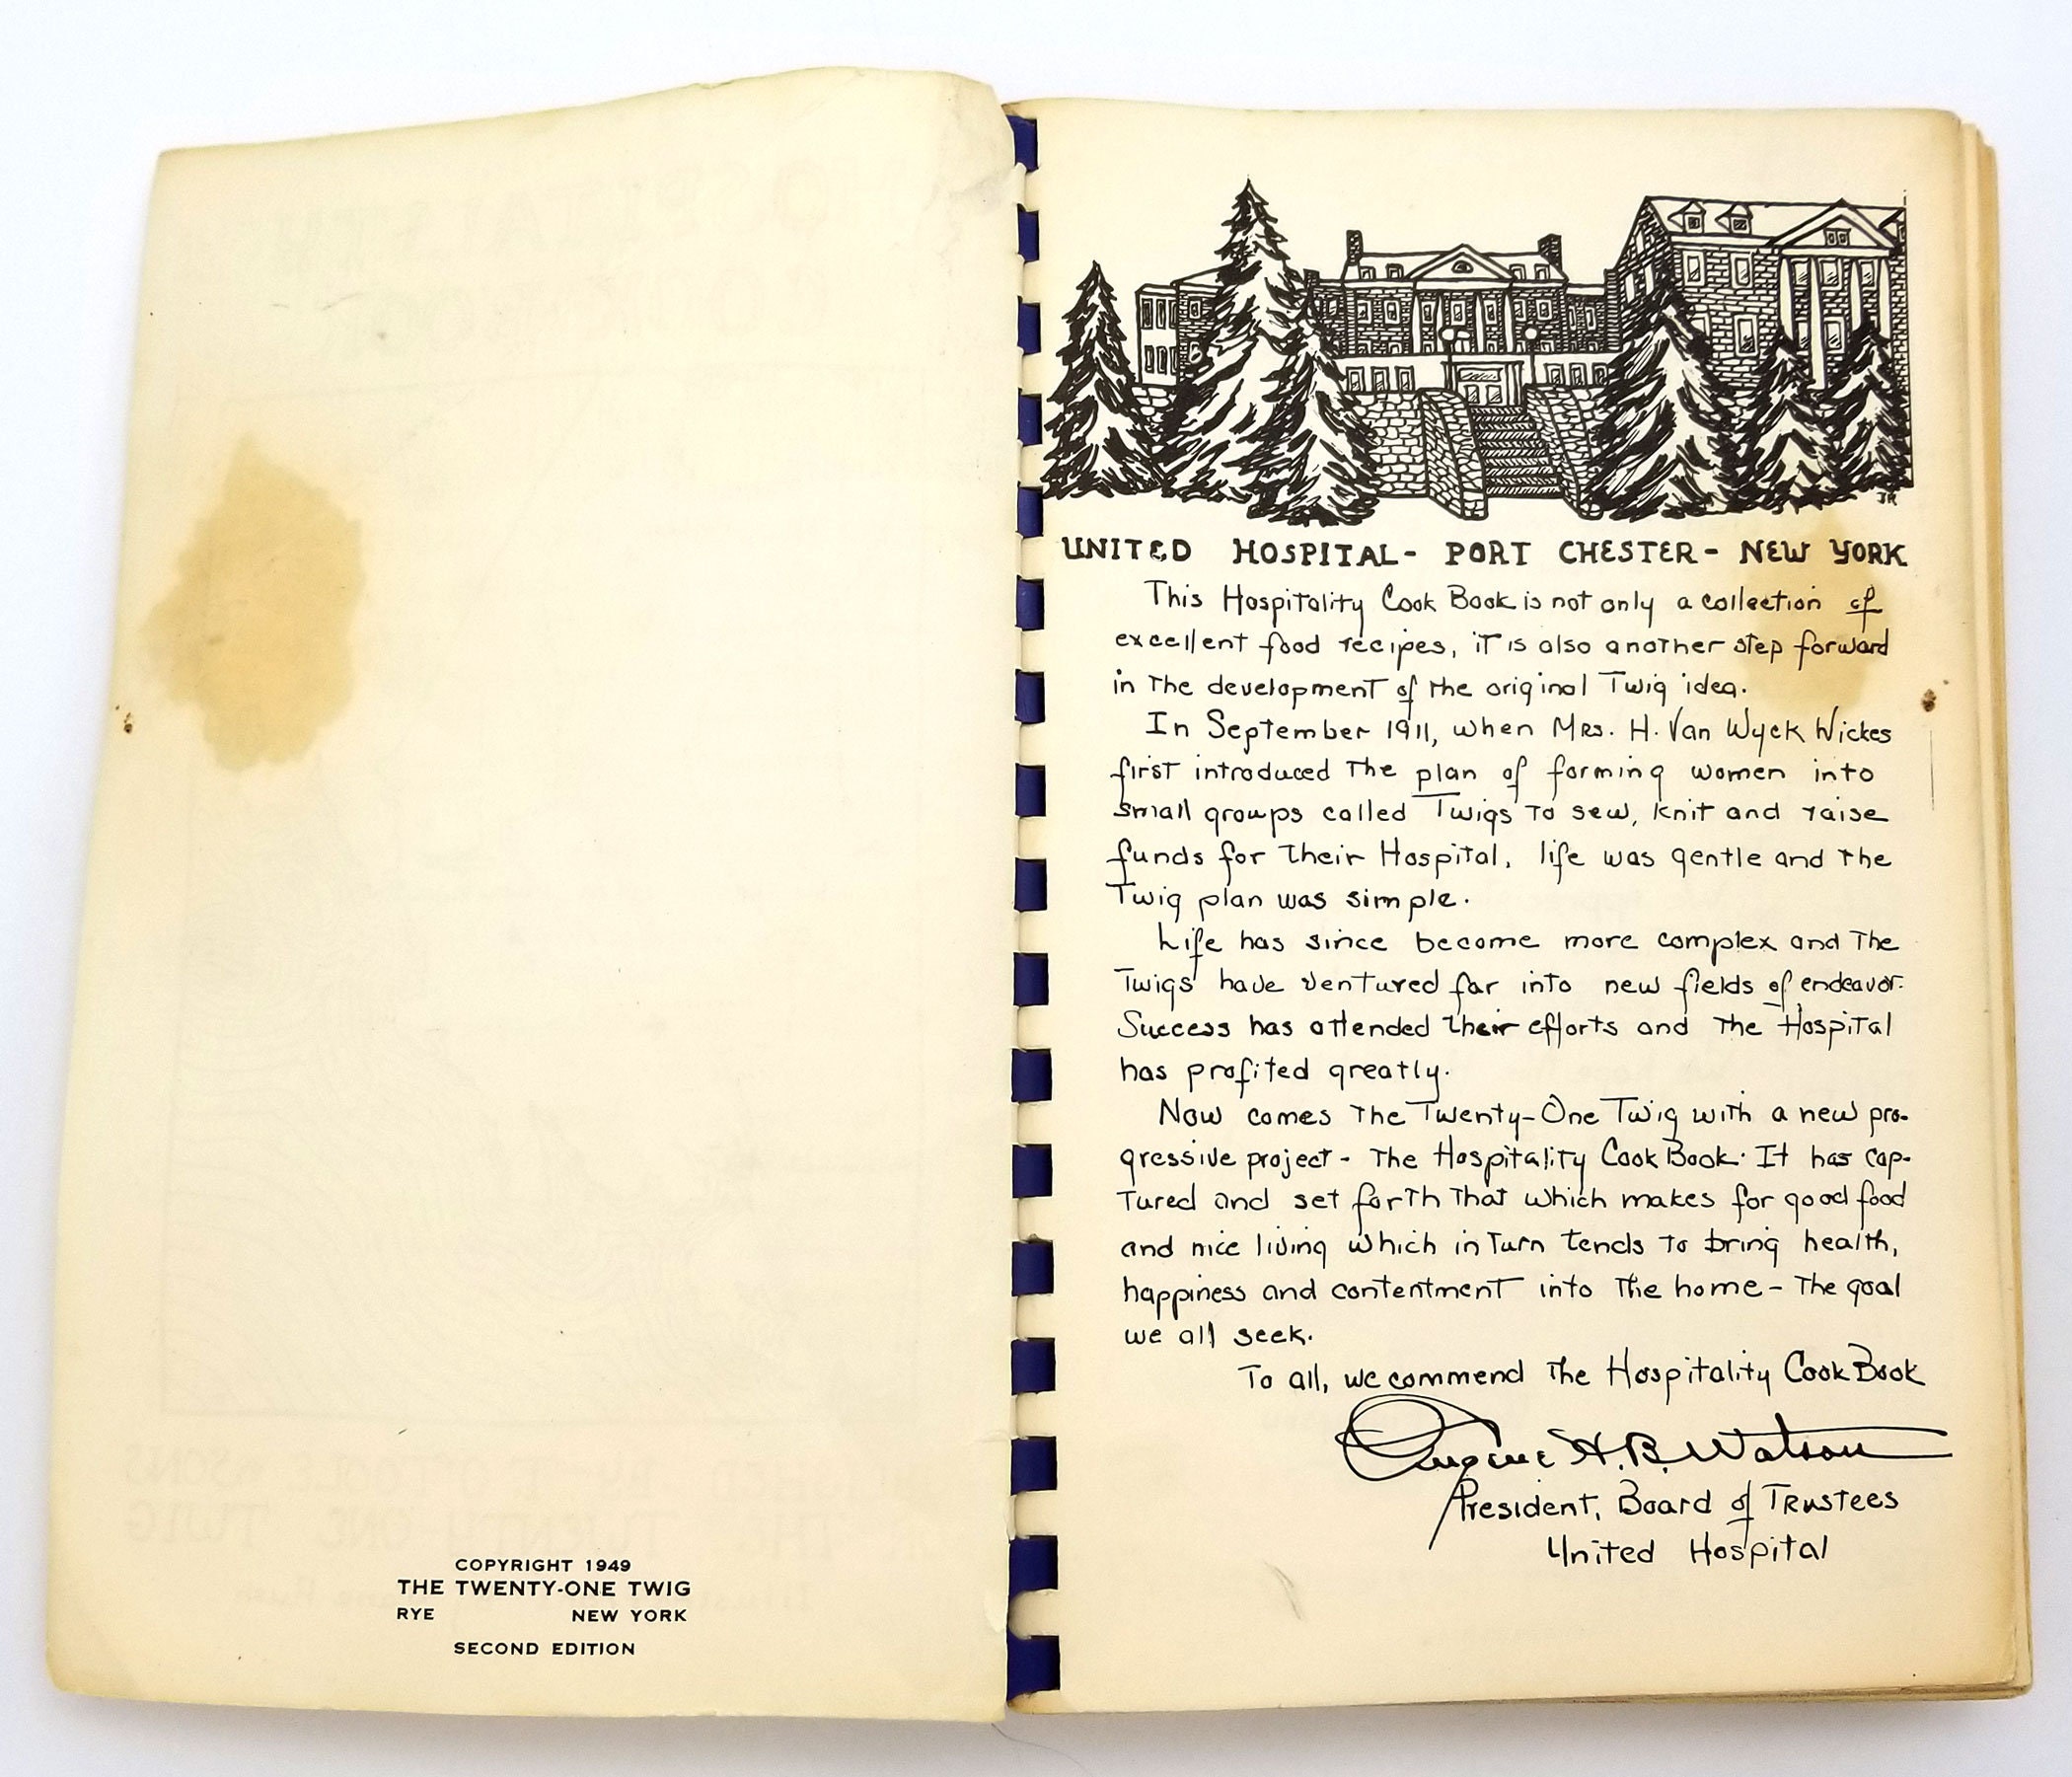 COPYRIGHT 1949
THE TWENTY-ONE TWIG
RYE NEW YORK
SECOND EDITION
JR
UNITED HOSPITAL - PORT CHESTER - NEW YORK
This Hospitality Cook Book is not only a collection of
excellent food recipes, it is also another step forward
in the development of the original Twig idea.
In September 1911, when Mrs. H. Van Wyck Wickes
first introduced the plan of forming women into
small groups called Twigs to sew, knit and raise
funds for their Hospital, life was gentle and the
Twig plan was simple.
Life has since become more complex and the
Twigs have ventured far into new fields of endeavor.
Success has attended their efforts and the Hospital
has profited greatly.
Now comes the Twenty-One Twig with a new pro-
gressive project - the Hospitality Cook Book. It has cap-
tured and set forth that which makes for good food
and nice living which in turn tends to bring health,
happiness and contentment into the home - the goal
we all seek.
To all, we commend the Hospitality Cook Book
Eugene H. B. Watson
President, Board of Trustees
United Hospital